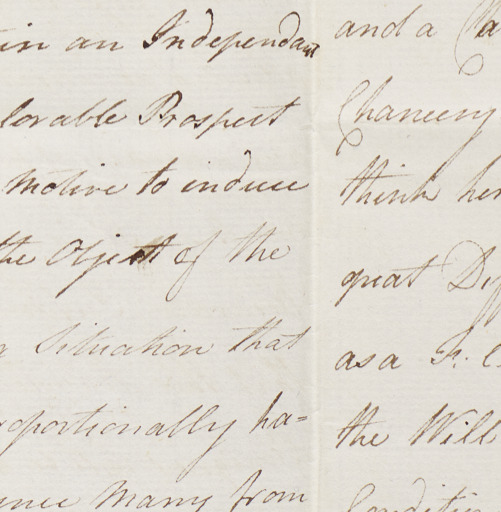 in an Independant
lorable Prospect
Motive to induce
the Object of the
Situation that
roportionally ha=
many from
and a
Chancery
think her
great
as a
the Will